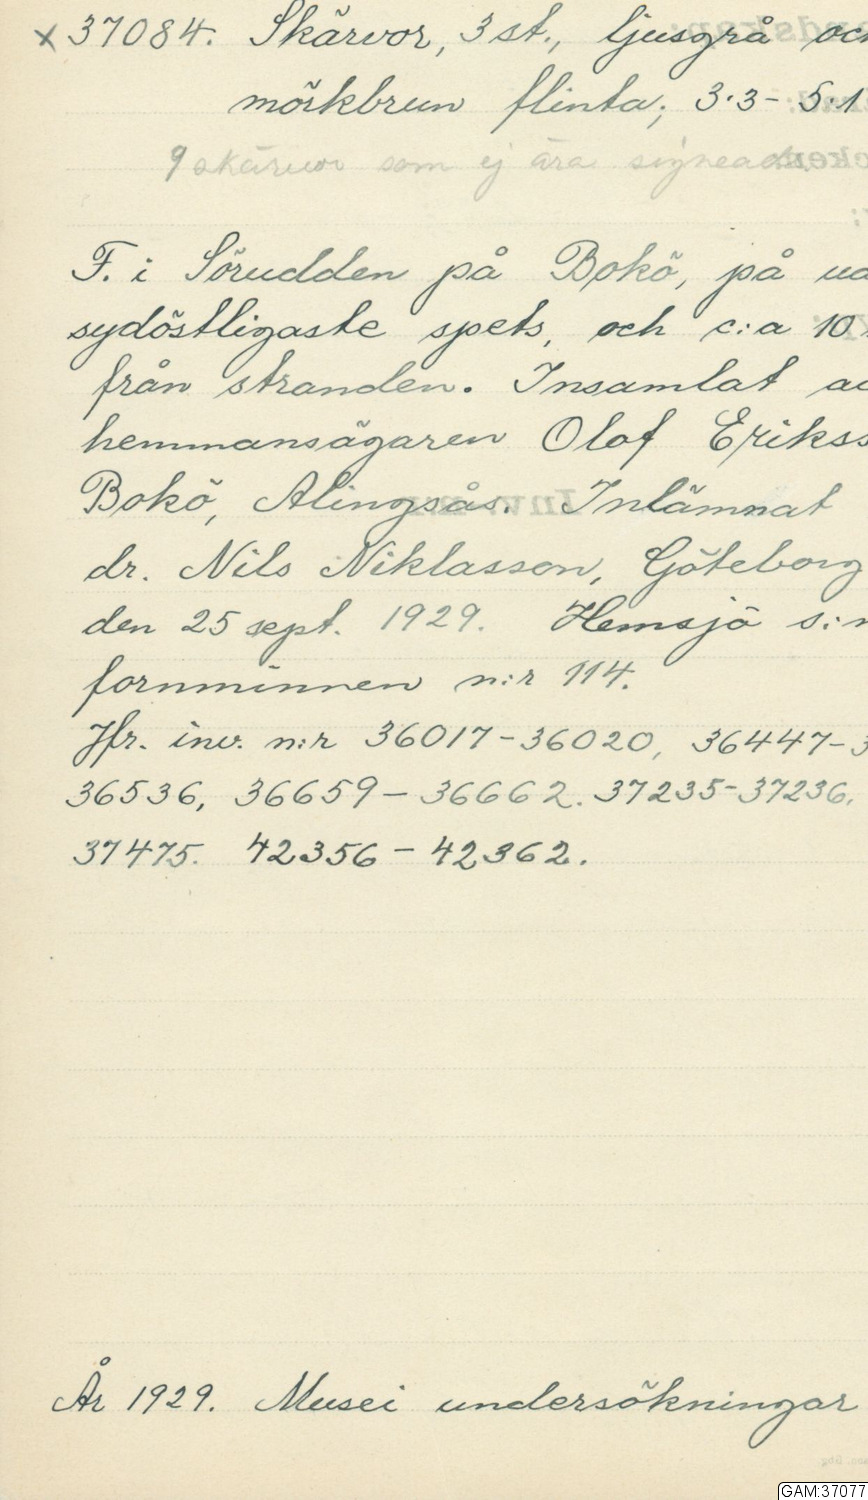 x 37084. Skärvor, 3 st., ljusgrå och
mörkbrun flinta; 3.3 - 5.1
9 skärvor som ej äro signerade.
F. i Sörudden på Bokö, på
sydöstligaste spets, och c:a 10
från stranden. Insamlat
hemmansägaren Olof Erikss
Bokö, Alingsås. Inlämnat
dr. Nils Niklasson, Göteborg
den 25 sept. 1929. Hemsjö s:n
fornminnen n:r 114.
Jfr. inv. n:r 36017-36020, 36447-3
36536, 36659 - 36662. 37235-37236,
37475. 42356 - 42362.
År 1929. Musei undersökningar
GAM:37077